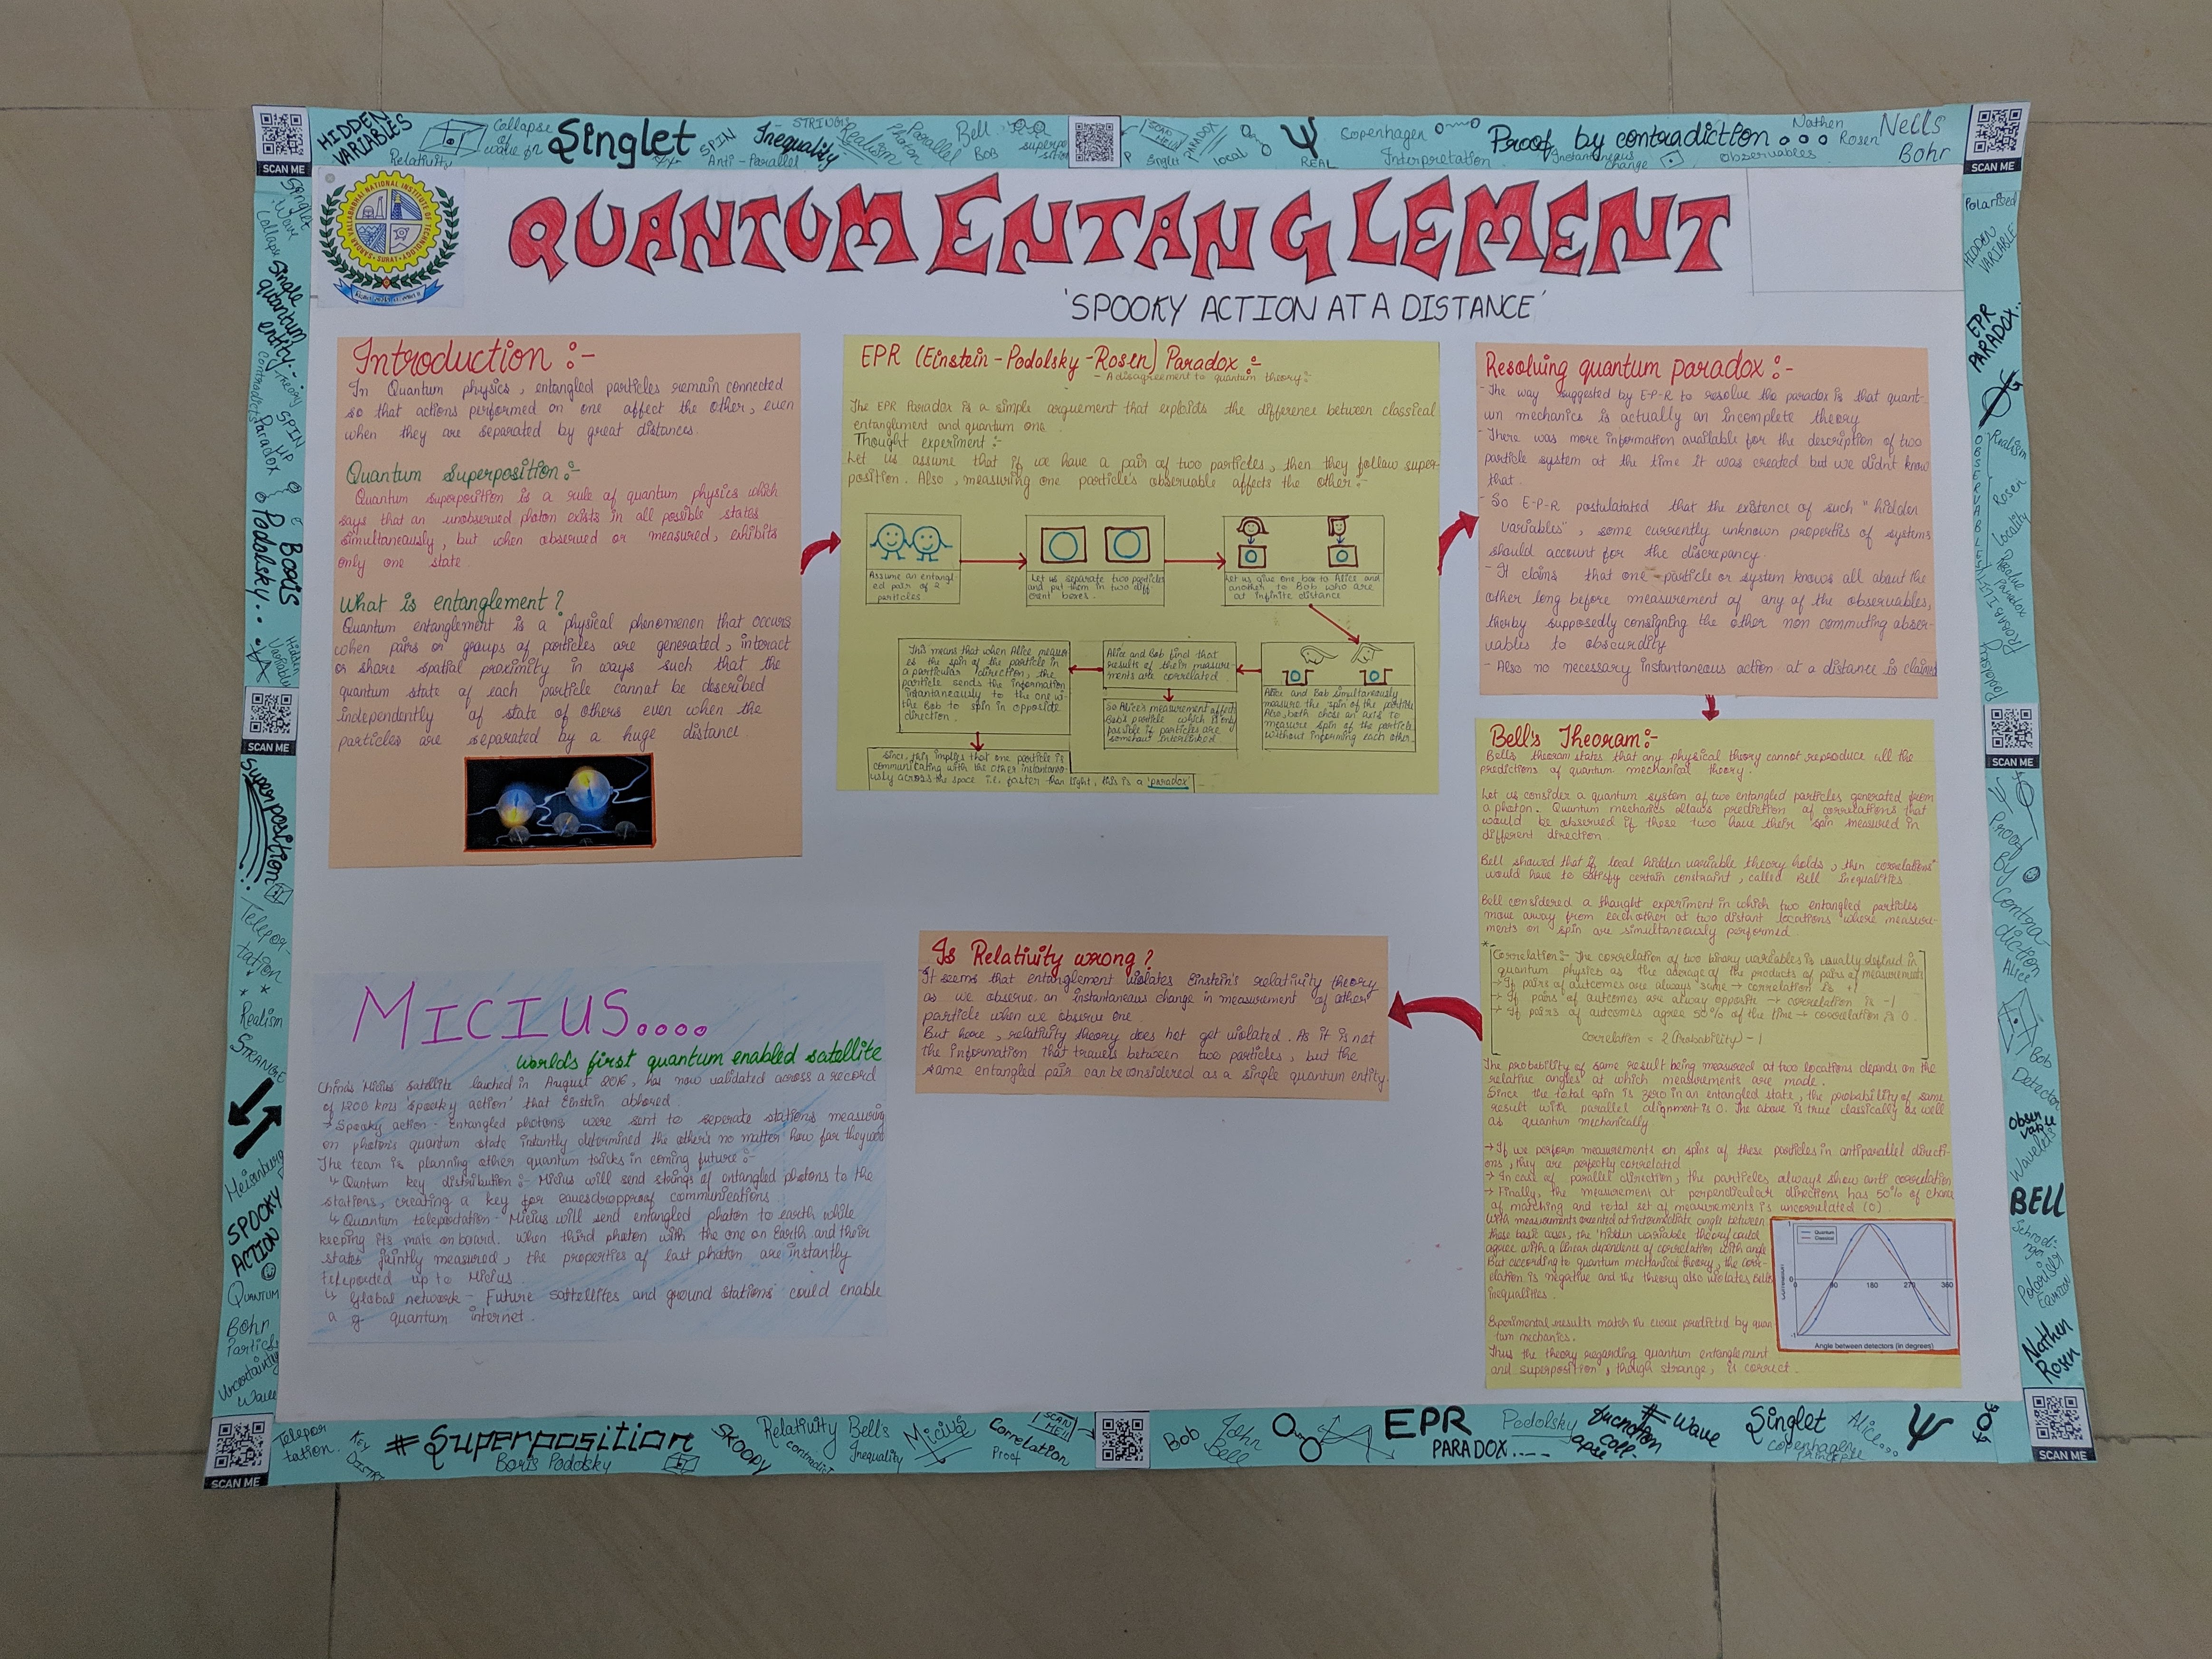 SCAN ME
HIDDEN VARIABLES
Relativity
Collapse of wave fn
Singlet
SPIN
Anti-Parallel
Inequality
STRINGS
Realism
Photon
Parallel
Bell
Bob
Singlet
PARADOX
local
Ψ
REAL
Copenhagen
Interpretation
Proof by contradiction
Instantaneous change
Observables
Nathen
Rosen
Nells
Bohr
SCAN ME
SARDAR VALLABHBHAI NATIONAL INSTITUTE OF TECHNOLOGY
SURAT
QUANTUM ENTANGLEMENT
'SPOOKY ACTION AT A DISTANCE'
Introduction :-
In Quantum physics, entangled particles remain connected
so that actions performed on one affect the other, even
when they are separated by great distances.
Quantum Superposition:-
Quantum superposition is a rule of quantum physics which
says that an unobserved photon exists in all possible states
simultaneously, but when observed or measured, exhibits
only one state.
What is entanglement?
Quantum entanglement is a physical phenomenon that occurs
when pairs or groups of particles are generated, interact
or share spatial proximity in ways such that the
quantum state of each particle cannot be described
independently of state of others even when the
particles are separated by a huge distance.
EPR (Einstein-Podolsky-Rosen) Paradox :-
- A disagreement to quantum theory:-
The EPR Paradox is a simple arguement that exploits the difference between classical
entanglement and quantum one.
Thought experiment :-
Let us assume that if we have a pair of two particles, then they follow super-
position. Also, measuring one particle's observable affects the other:-
Assume an entangl-
ed pair of 2
particles
Let us separate two particles
and put them in two diff
erent boxes.
Let us give one box to Alice and
another to Bob who are
at infinite distance
Alice and Bob simultaneously
measure the spin of the particle
Also, both chose an axis to
measure spin of the particle
without informing each other.
Alice and Bob find that
results of their measure-
ments are correlated.
So Alice's measurement affects
Bob's particle which is only
possible if particles are
somehow interlinked
This means that when Alice measur
es the spin of the particle in
a particular direction, the
particle sends the information
instantaneously to the one w-
the Bob to spin in opposite
direction.
Since, this implies that one particle is
communicating with the other instantaneo-
usly across the space i.e. faster than light, this is a 'paradox'
Resolving quantum paradox :-
- The way suggested by E-P-R to resolve the paradox is that quant-
um mechanics is actually an incomplete theory
- There was more information available for the description of two
particle system at the time it was created but we didn't know
that.
- So E-P-R postulatated that the existence of such "hidden
variables", some currently unknown properties of systems
should account for the discrepancy.
- It claims that one particle or system knows all about the
other long before measurement of any of the observables,
therby supposedly consigning the other non commuting obser-
vables to obsurdity
- Also no necessary instantaneous action at a distance is claims
Bell's Theoram:-
Bell's theoram states that any physical theory cannot reproduce all the
predictions of quantum mechanical theory.
Let us consider a quantum system of two entangled particles generated from
a photon. Quantum mechanics allows prediction of correlations that
would be observed if these two have their spin measured in
different direction.
Bell showed that if local hidden variable theory holds, then correlations
would have to satisfy certain constraint, called Bell inequalities.
Bell considered a thought experiment in which two entangled particles
move away from eachother at two distant locations where measure-
ments on spin are simultaneously performed.
* Correlation:- The correlation of two binary variables is usually defined in
quantum physics as the average of the products of pairs of measurements
→ If pairs of outcomes are always same → correlation is +1
→ If pairs of outcomes are alway opposite → correlation is -1
→ If pairs of outcomes agree 50% of the time → correlation is 0.
Correlation = 2(Probability) - 1
The probability of same result being measured at two locations depends on the
relative angles at which measurements are made.
Since the total spin is zero in an entangled state, the probability of same
result with parallel alignment is 0. The above is true classically as well
as quantum mechanically
→ If we perform measurements on spins of these particles in antiparallel directi-
ons, they are perfectly correlated
→ In case of parallel direction, the particles always show anti correlation
→ Finally, the measurement at perpendicular directions has 50% of chance
of matching and total set of measurements is uncorrelated (0).
With measurements oriented at intermediate angle between
these basic cases, the 'hidden variable' theory could
agree with a linear dependence of correlation with angle
But according to quantum mechanical theory, the corr-
elation is negative and the theory also violates Bell's
inequalities.
Experimental results match the curve predicted by quan
tum mechanics.
Thus the theory regarding quantum entanglement
and superposition, though strange, is correct.
Quantum
Classical
1
0
-1
90
180
270
360
Angle between detectors (in degrees)
Is Relativity wrong?
It seems that entanglement violates Einstein's relativity theory
as we observe an instantaneous change in measurement of other
particle when we observe one.
But here, relativity theory does not get violated. As it is not
the information that travels between two particles, but the
same entangled pair can be considered as a single quantum entity.
MICIUS....
world's first quantum enabled satellite
China's Micius satellite lauched in August 2016, has now validated across a record
of 1200 kms 'spooky action' that Einstein abhored.
→ Spooky action - Entangled photons were sent to seperate stations measuring
on photon's quantum state intantly determined the other's no matter how far they
The team is planning other quantum tricks in coming future:-
↳ Quntum key distribution:- Micius will send strings of entangled photons to the
stations, creating a key for eavesdropproof communications
↳ Quantum teleportation- Micius will send entangled photon to earth while
keeping its mate on board. When third photon with the one on Earth and their
states jointly measured, the properties of last photon are instantly
up to Micius.
↳ Global network - Future sattellites and ground stations could enable
a g quantum internet.
Singlet
Wave
Collapse
Single quantum entity..
THEORY
contradicts
SPIN UP
Paradox
Boris
Podolsky..
Hidden Variable
SCAN ME
Superposition
Telepor-
tation
Realism
STRANGE
SPOOKY
ACTION
QUANTUM
Bohr
Particle
Uncertainity
Wave
SCAN ME
Polarized
HIDDEN VARIABLE
EPR
PARADOX..
OBSERVABLES
Realism
Rosen
Locality
Paradox
Podolsky
SCAN ME
Ψ
Proof
By
Contra-
diction
Alice
Bob
Detector
Wavelets
BELL
Schrodi-
nger
Nathen
Rosen
SCAN ME
Telepor
tation.
KEY
DISTRI
#Superposition
Boris Podolsky
SKOOPY
Relativity
contradict
Bell's
Inequality
Micius
Correlation
Proof
SCAN ME
Bob
John
Bell
EPR
PARADOX....
Podolsky
function
coll-
apse
#Wave
Singlet
Copenhagen
Principle
Alice...
Ψ